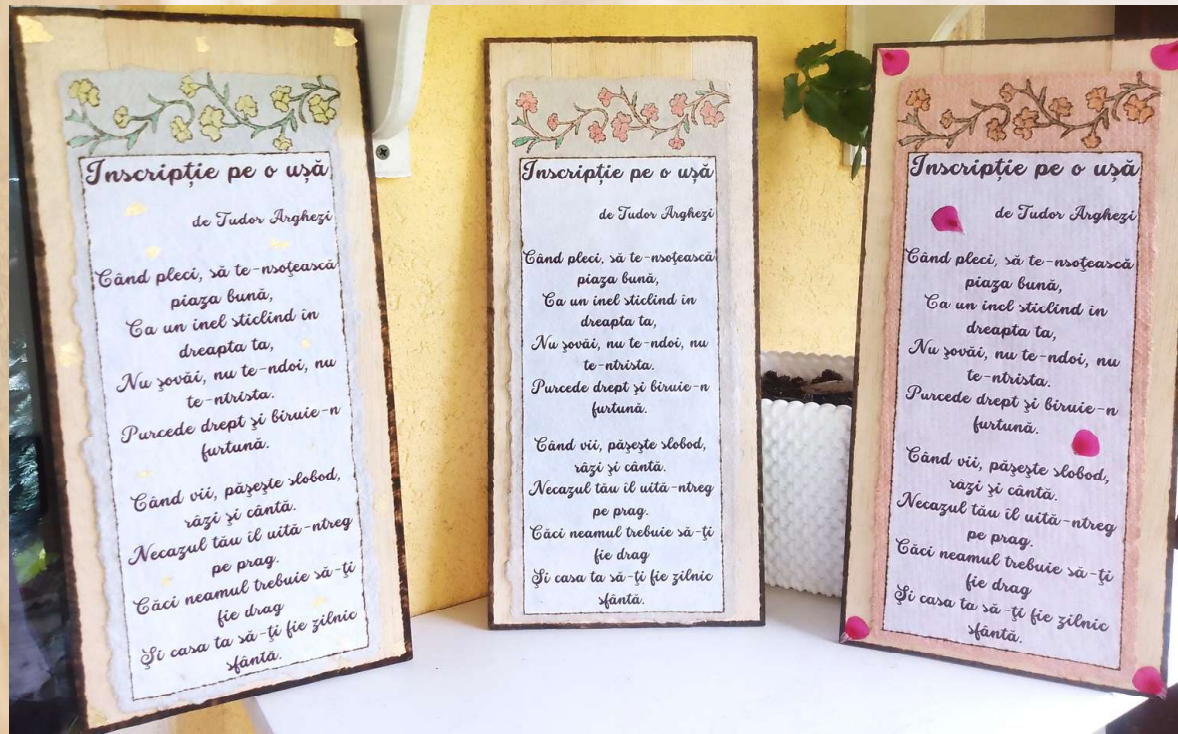 Inscripție pe o ușă
de Tudor Arghezi
Când pleci, să te-nsoţească
piaza bună,
Ca un inel sticlind în
dreapta ta,
Nu şovăi, nu te-ndoi, nu
te-ntrista.
Purcede drept şi biruie-n
furtună.
Când vii, păşeşte slobod,
râzi şi cântă.
Necazul tău îl uită-ntreg
pe prag.
Căci neamul trebuie să-ţi
fie drag
Şi casa ta să-ţi fie zilnic
sfântă.
Inscripție pe o ușă
de Tudor Arghezi
Când pleci, să te-nsoţească
piaza bună,
Ca un inel sticlind în
dreapta ta,
Nu şovăi, nu te-ndoi, nu
te-ntrista.
Purcede drept şi biruie-n
furtună.
Când vii, păşeşte slobod,
râzi şi cântă.
Necazul tău îl uită-ntreg
pe prag.
Căci neamul trebuie să-ţi
fie drag
Şi casa ta să-ţi fie zilnic
sfântă.
Inscripție pe o ușă
de Tudor Arghezi
Când pleci, să te-nsoţească
piaza bună,
Ca un inel sticlind în
dreapta ta,
Nu şovăi, nu te-ndoi, nu
te-ntrista.
Purcede drept şi biruie-n
furtună.
Când vii, păşeşte slobod,
râzi şi cântă.
Necazul tău îl uită-ntreg
pe prag.
Căci neamul trebuie să-ţi
fie drag
Şi casa ta să-ţi fie zilnic
sfântă.